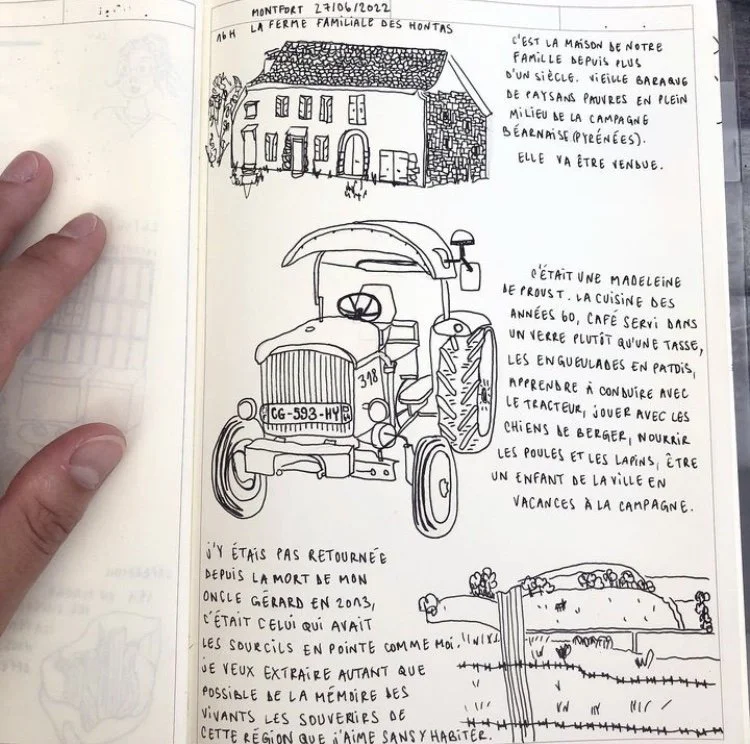 MONTFORT 27/06/2022
16H LA FERME FAMILIALE DES HONTAS
C'EST LA MAISON DE NOTRE
FAMILLE DEPUIS PLUS
D'UN SIÈCLE. VIEILLE BARAQUE
DE PAYSANS PAUVRES EN PLEIN
MILIEU DE LA CAMPAGNE
BÉARNAISE (PYRÉNÉES).
ELLE VA ÊTRE VENDUE.
C'ÉTAIT UNE MADELEINE
DE PROUST. LA CUISINE DES
ANNÉES 60, CAFÉ SERVI DANS
UN VERRE PLUTÔT QU'UNE TASSE,
LES ENGUEULADES EN PATOIS,
APPRENDRE À CONDUIRE AVEC
LE TRACTEUR, JOUER AVEC LES
CHIENS DE BERGER, NOURRIR
LES POULES ET LES LAPINS, ÊTRE
UN ENFANT DE LA VILLE EN
VACANCES À LA CAMPAGNE.
398
CG-593-HY
J'Y ÉTAIS PAS RETOURNÉE
DEPUIS LA MORT DE MON
ONCLE GÉRARD EN 2013,
C'ÉTAIT CELUI QUI AVAIT
LES SOURCILS EN POINTE COMME MOI.
JE VEUX EXTRAIRE AUTANT QUE
POSSIBLE DE LA MÉMOIRE DES
VIVANTS LES SOUVENIRS DE
CETTE RÉGION QUE J'AIME SANS Y HABITER.